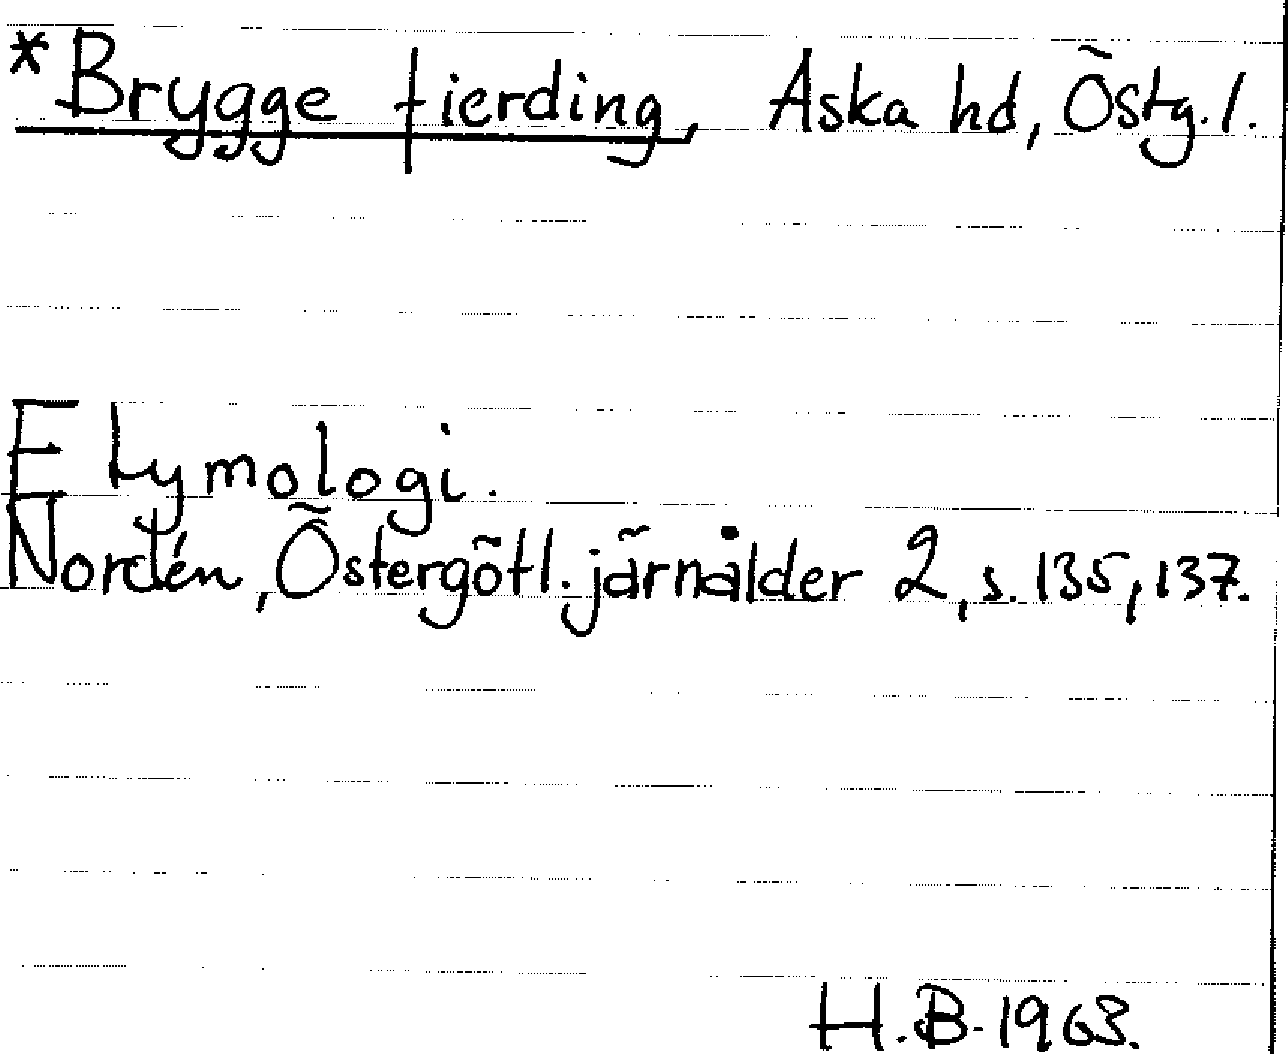 *Brygge fierding, Aska hd, Östg. l.
Etymologi.
Nordén, Östergötl. järnålder 2, s. 135, 137.
H.B. 1963.